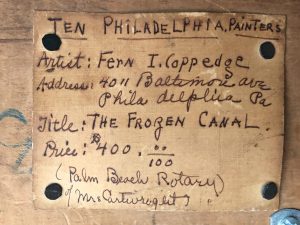 TEN PHILADELPHIA PAINTERS
Artist: Fern I. Coppedge
Address: 4011 Baltimore ave
Phila delphia Pa
Title: THE FROZEN CANAL.
Price: $400.00/100
(Palm Beach Rotary)
of Mrs Cartwright